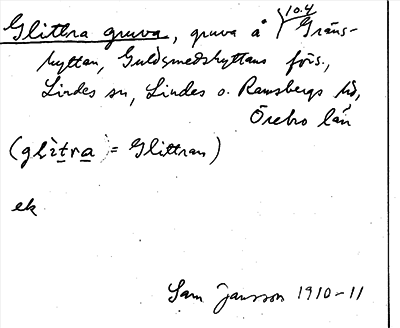 10.4
Glittra gruva, gruva å Gräns-
hyttan, Guldsmedshyttans förs.,
Lindes sn, Lindes o. Ramsbergs hd,
Örebro län
(glìtra = Glittran)
ek
Sam Jansson 1910-11